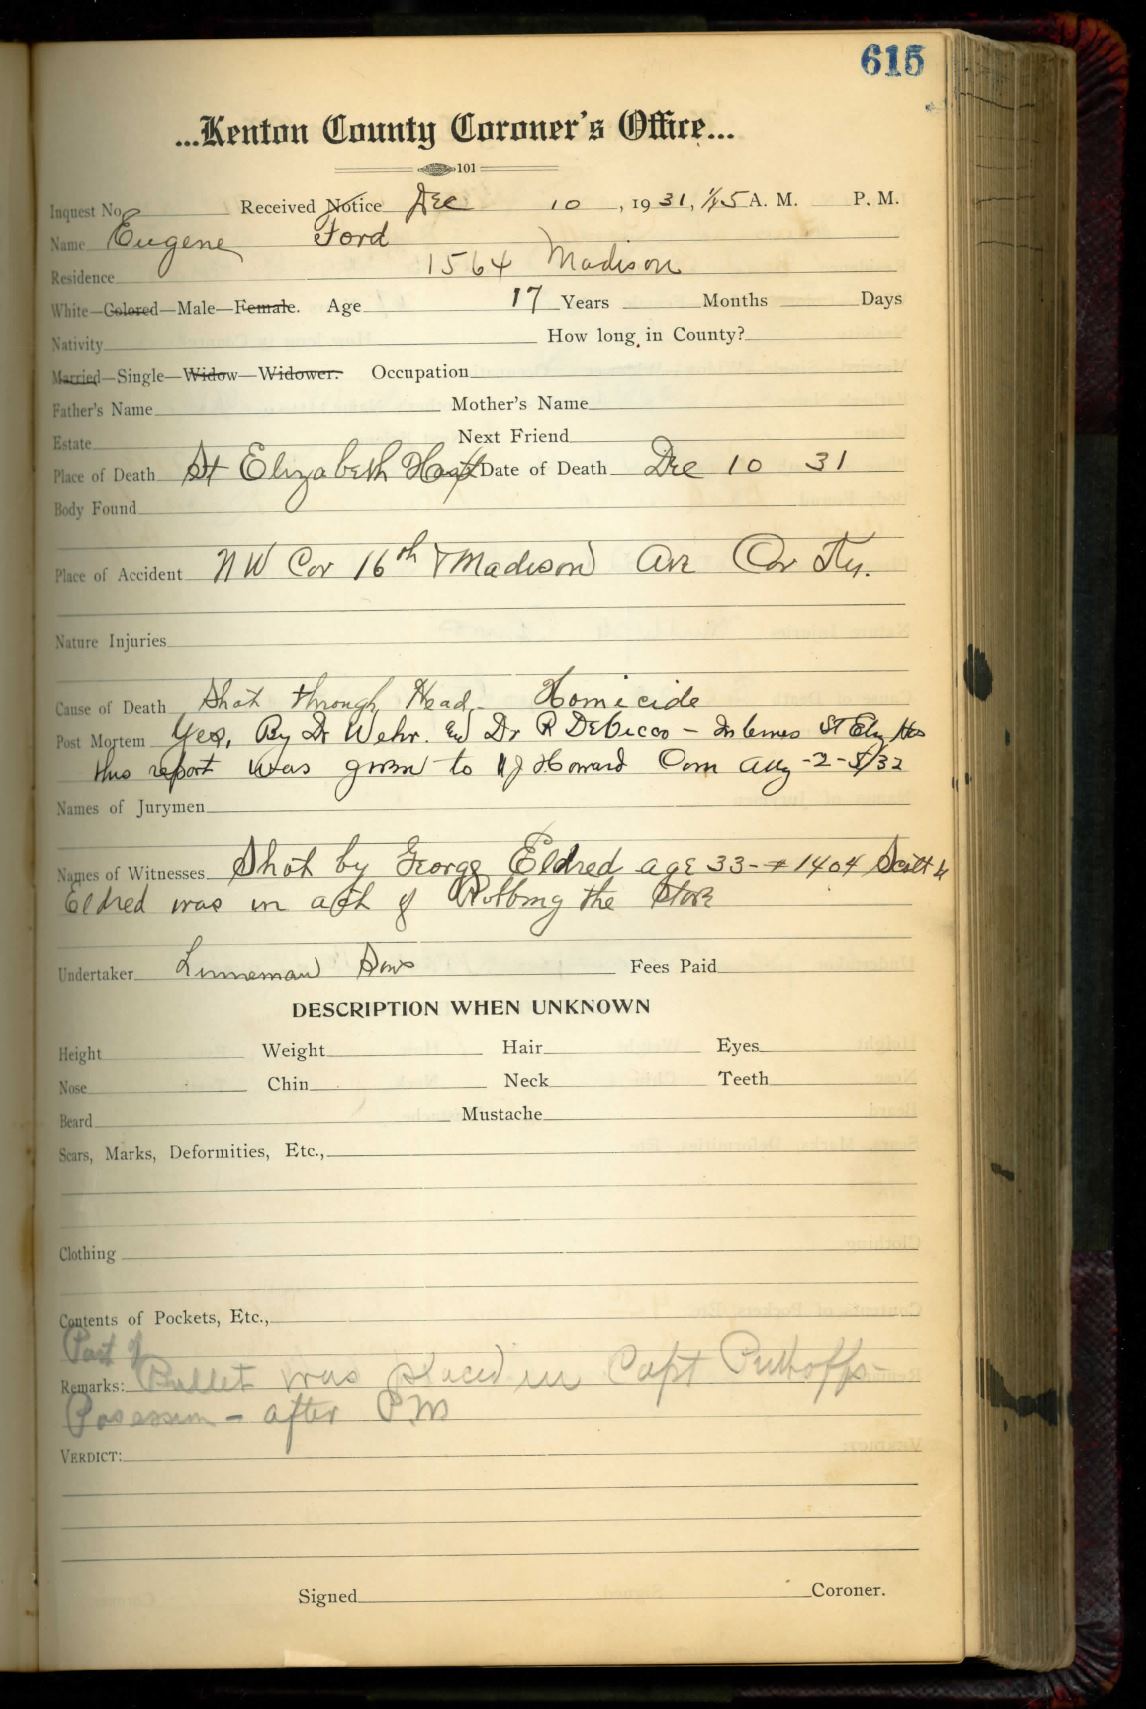 615
...Kenton County Coroner's Office...
101
Inquest No. Received Notice Dec 10, 1931, 1/45 A. M. P. M.
Name Eugene Ford
Residence 1564 Madison
White—Colored—Male—Female. Age 17 Years Months Days
Nativity How long in County?
Married—Single—Widow—Widower. Occupation
Father's Name Mother's Name
Estate Next Friend
Place of Death St Elizabeth Hosp Date of Death Dec 10 31
Body Found
Place of Accident NW Cor 16th & Madison Ave Cov Ky.
Nature Injuries
Cause of Death Shot through Head - Homicide
Post Mortem Yes, By Dr Wehr. and Dr R DeCicco - Internes St Eliz Hos
this report was given to Howard Com Atty -2-5/32
Names of Jurymen
Names of Witnesses Shot by George Eldred age 33 - # 1404 Scott st
Eldred was in act of Robbing the Store
Undertaker Linneman Sons Fees Paid
DESCRIPTION WHEN UNKNOWN
Height Weight Hair Eyes
Nose Chin Neck Teeth
Beard Mustache
Scars, Marks, Deformities, Etc.,
Clothing
Contents of Pockets, Etc.,
Part of
Remarks: Bullet was placed in Capt Puthoffs-
Posession - after PM
VERDICT:
Signed Coroner.